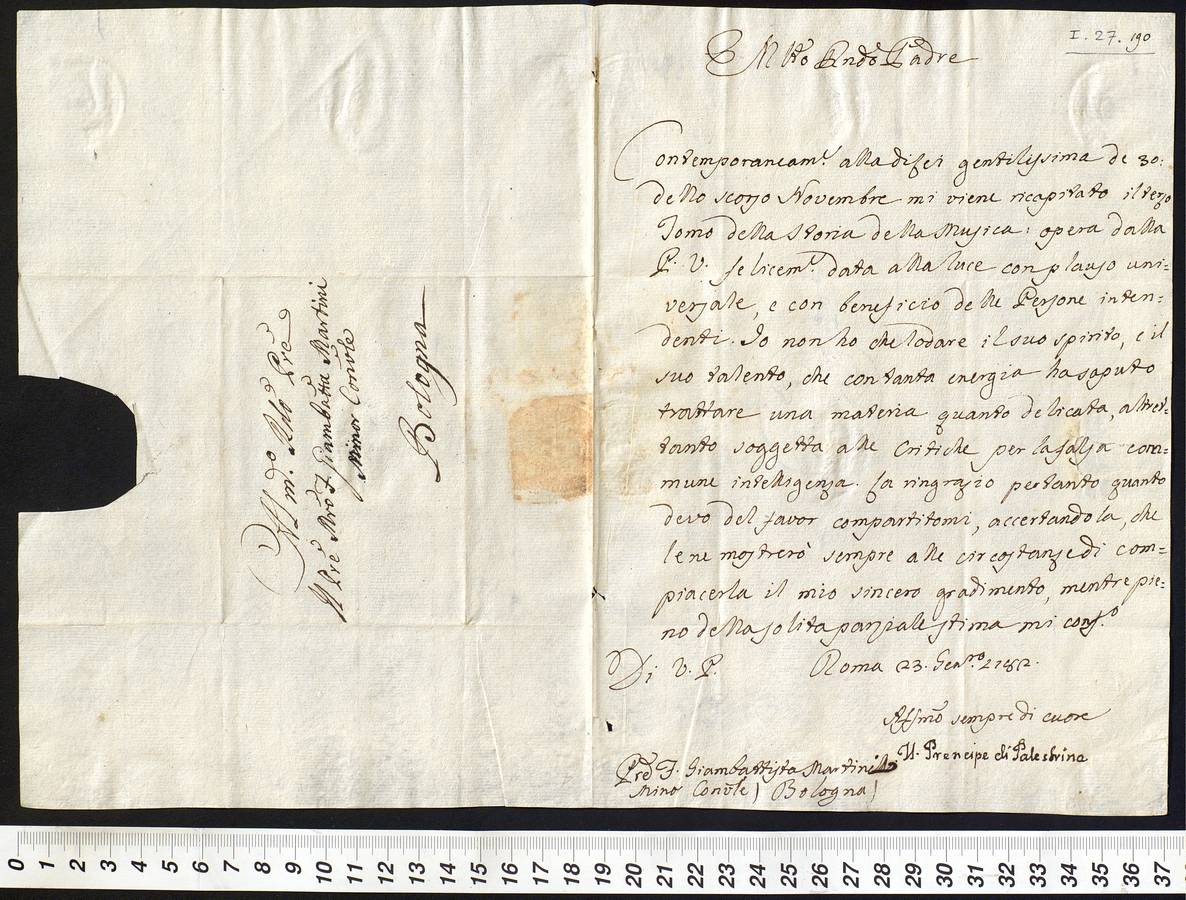 I. 27. 190
Mlto Rndo Padre
Contemporaneamte. alla di lei gentilissima de 30:
dello scorso Novembre mi viene ricapitato il terzo
Tomo della Storia della Musica: opera dalla
P. V. felicemte. data alla luce con plauso uni=
versale, e con beneficio delle Persone inten=
denti. Io non ho che lodare il suo spirito, e il
suo talento, che con tanta energia ha saputo
trattare una materia quanto delicata, altret=
tanto soggetta alle Critiche per la falsa com=
mune intelligenza. La ringrazio pertanto quanto
devo del favor compartitomi, accertandola, che
le ne mostrerò sempre alle circostanze di com=
piacerla il mio sincero gradimento, mentre pie=
no della solita parziale stima mi confo.
Di V. P. Roma 23. Gennro. 1782.
Affmo sempre di cuore
Il Prencipe di Palestrina
Pred F. Giambattista Martini
Mino Convle) Bologna)
Al mo. Rndo Pre
Il Pre Mro F. Giambatta Martini
Minor Convle
Bologna
0 1 2 3 4 5 6 7 8 9 10 11 12 13 14 15 16 17 18 19 20 21 22 23 24 25 26 27 28 29 30 31 32 33 34 35 36 37